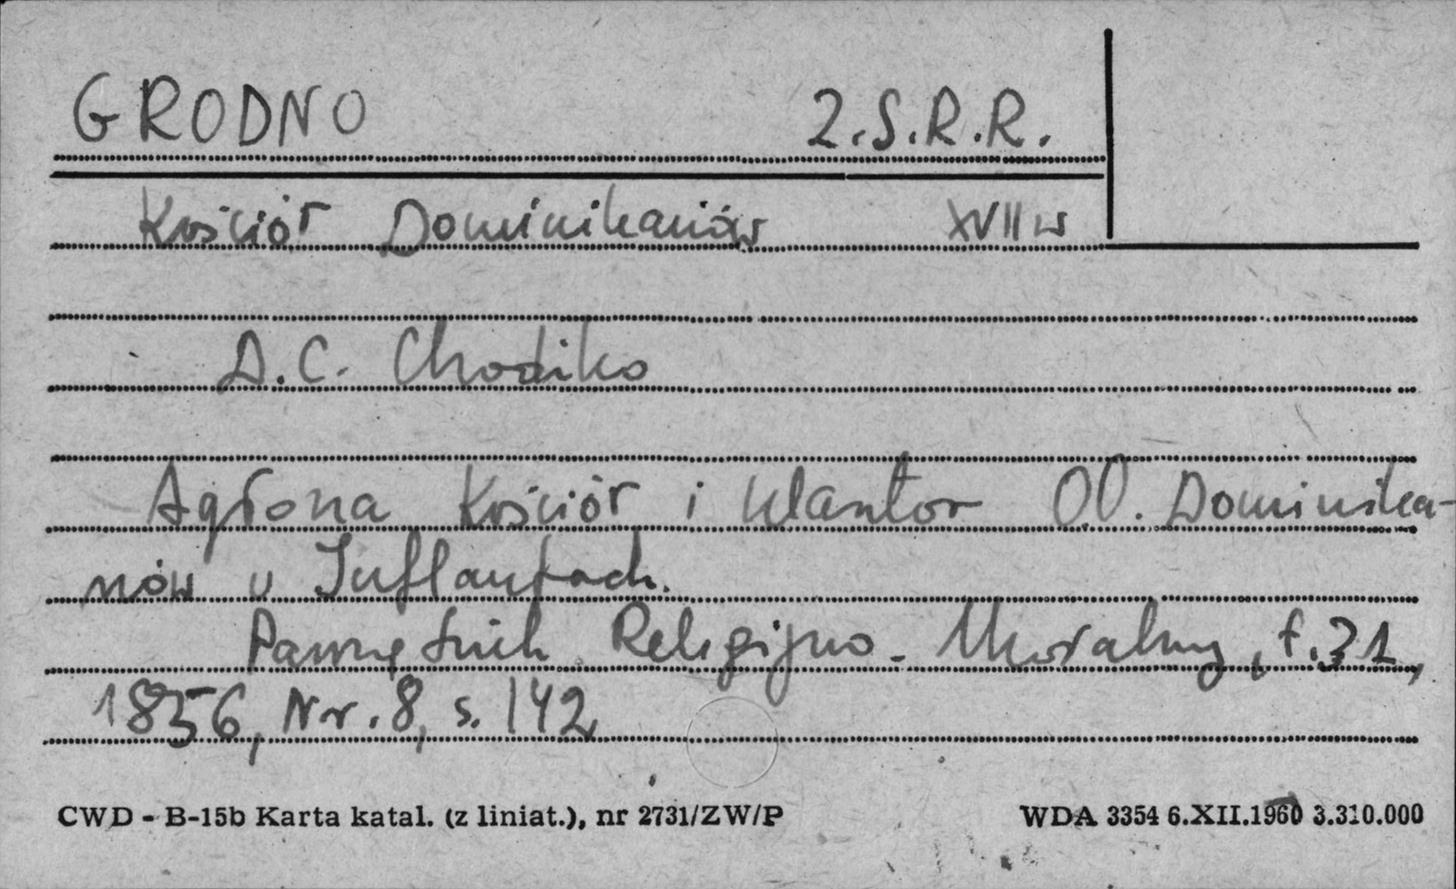 GRODNO Z.S.R.R.
Kościół Dominikanów XVII w
D.C. Chodźko
Agłona Kościół i klasztor OO. Dominika-
nów w Inflantach.
Pamiętnik Religijno-Moralny, t.31,
1856, Nr.8, s.142
CWD - B-15b Karta katal. (z liniat.), nr 2731/ZW/P WDA 3354 6.XII.1960 3.310.000